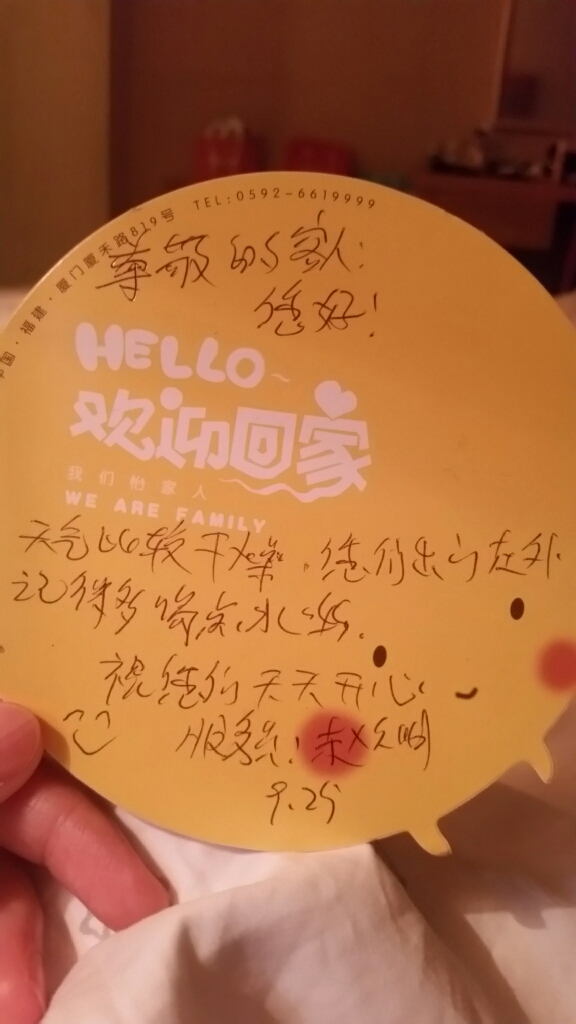 中国·福建·厦门厦禾路819号 TEL:0592-6619999
尊敬的客人:
您好!
HELLO~
欢迎回家
我们怡家人
WE ARE FAMILY
天气比较干燥,您们出门在外
记得多喝点水哟.
祝您们天天开心
服务员:赵
9.25